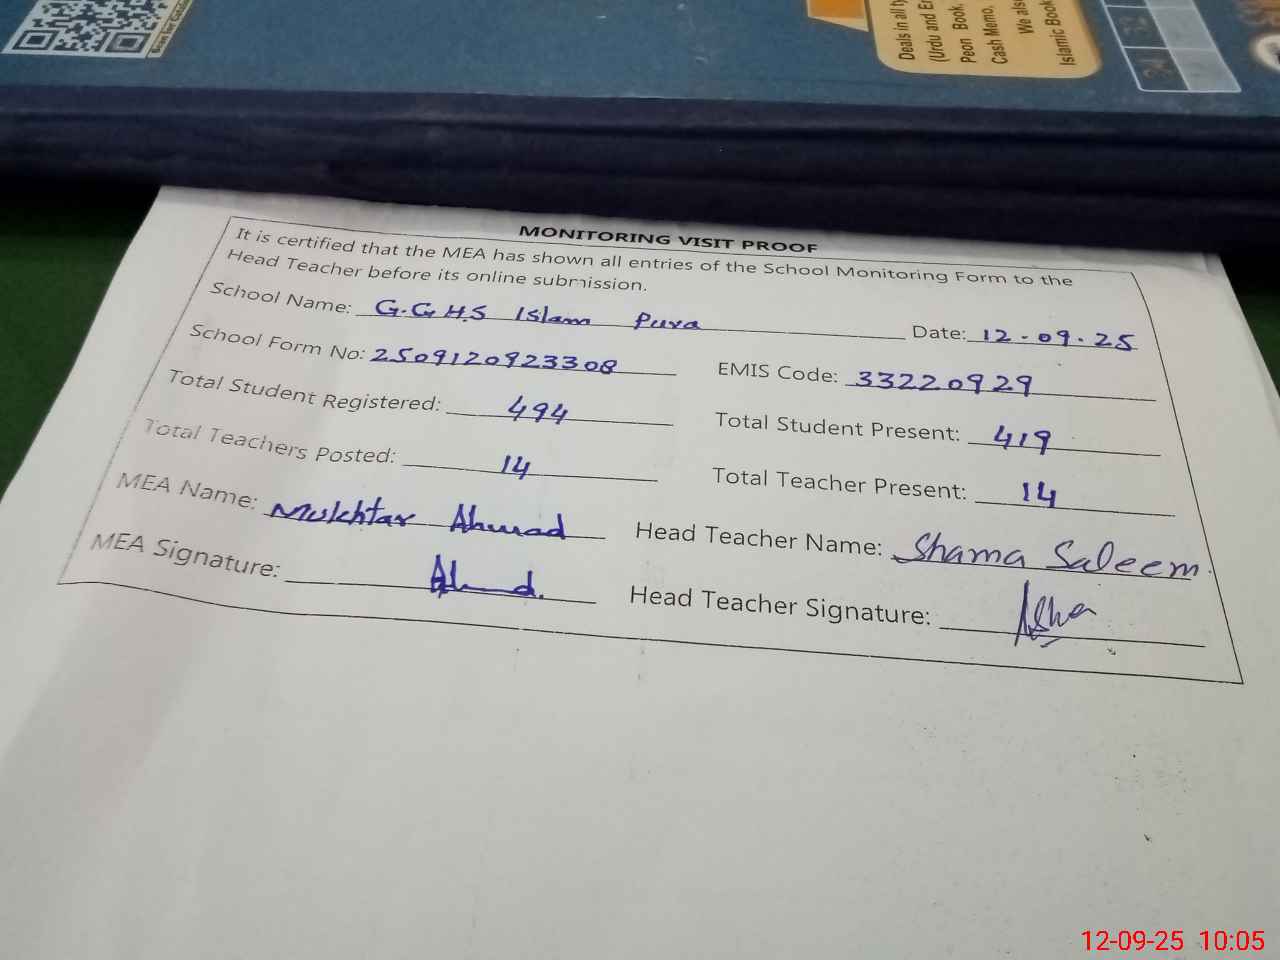 Deals in all
(Urdu and En
Peon Book,
Cash Memo,
We also
Islamic Book
32
34
MONITORING VISIT PROOF
It is certified that the MEA has shown all entries of the School Monitoring Form to the
Head Teacher before its online submission.
School Name: G.G.H.S Islam Pura Date: 12-09-25
School Form No: 2509120923308 EMIS Code: 33220929
Total Student Registered: 494 Total Student Present: 419
Total Teachers Posted: 14 Total Teacher Present: 14
MEA Name: Mukhtar Ahmad Head Teacher Name: Shama Saleem.
MEA Signature: Head Teacher Signature:
12-09-25 10:05